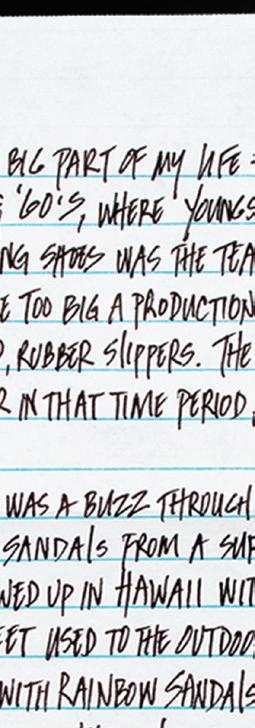 BIG PART OF MY LIFE
'60'S, WHERE YOUNGS
NG SHOES WAS THE TEA
E TOO BIG A PRODUCTION
, RUBBER SLIPPERS. THE
R IN THAT TIME PERIOD
WAS A BUZZ THROUGH
SANDALS FROM A SUR
WED UP IN HAWAII WIT
EET USED TO THE OUTDOO
WITH RAINBOW SANDALS